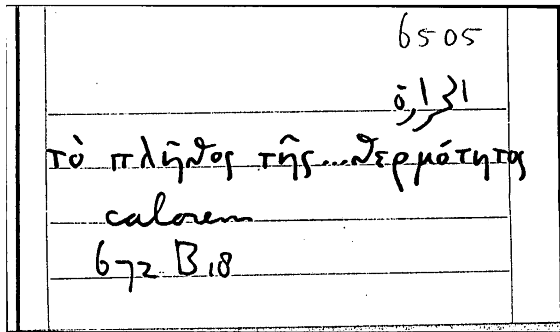 6505
τὸ πλῆθος τῆς...θερμότητος
calorem
672 B,18